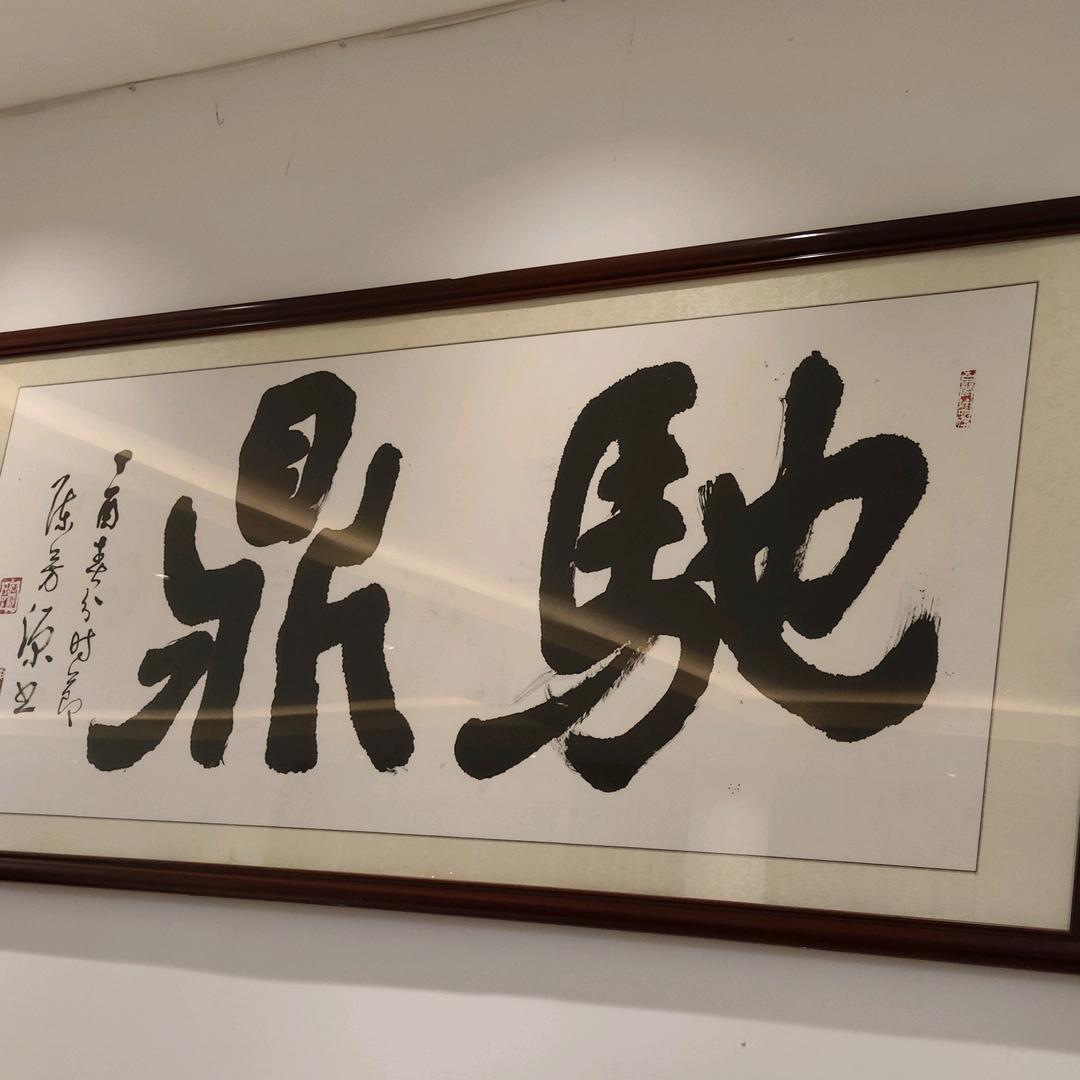 馳鼎
酉春分时节
陈芳源书